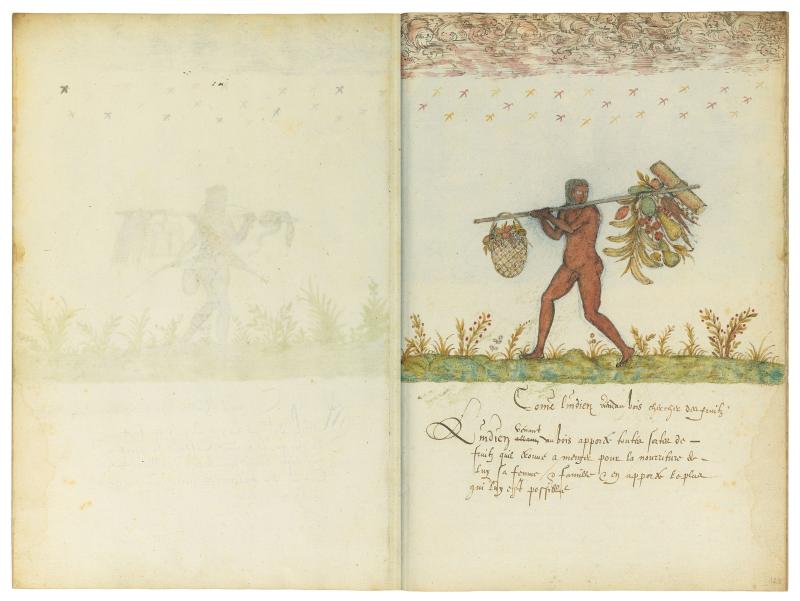 Come l'indien venāt au bois chercher des fruitz
L'indien venant allant au bois apporte toutes sortes de
fruitz quil trouve a menger pour la nourriture de
luy sa femme & famille & en apporte le plus
qui luy est possible